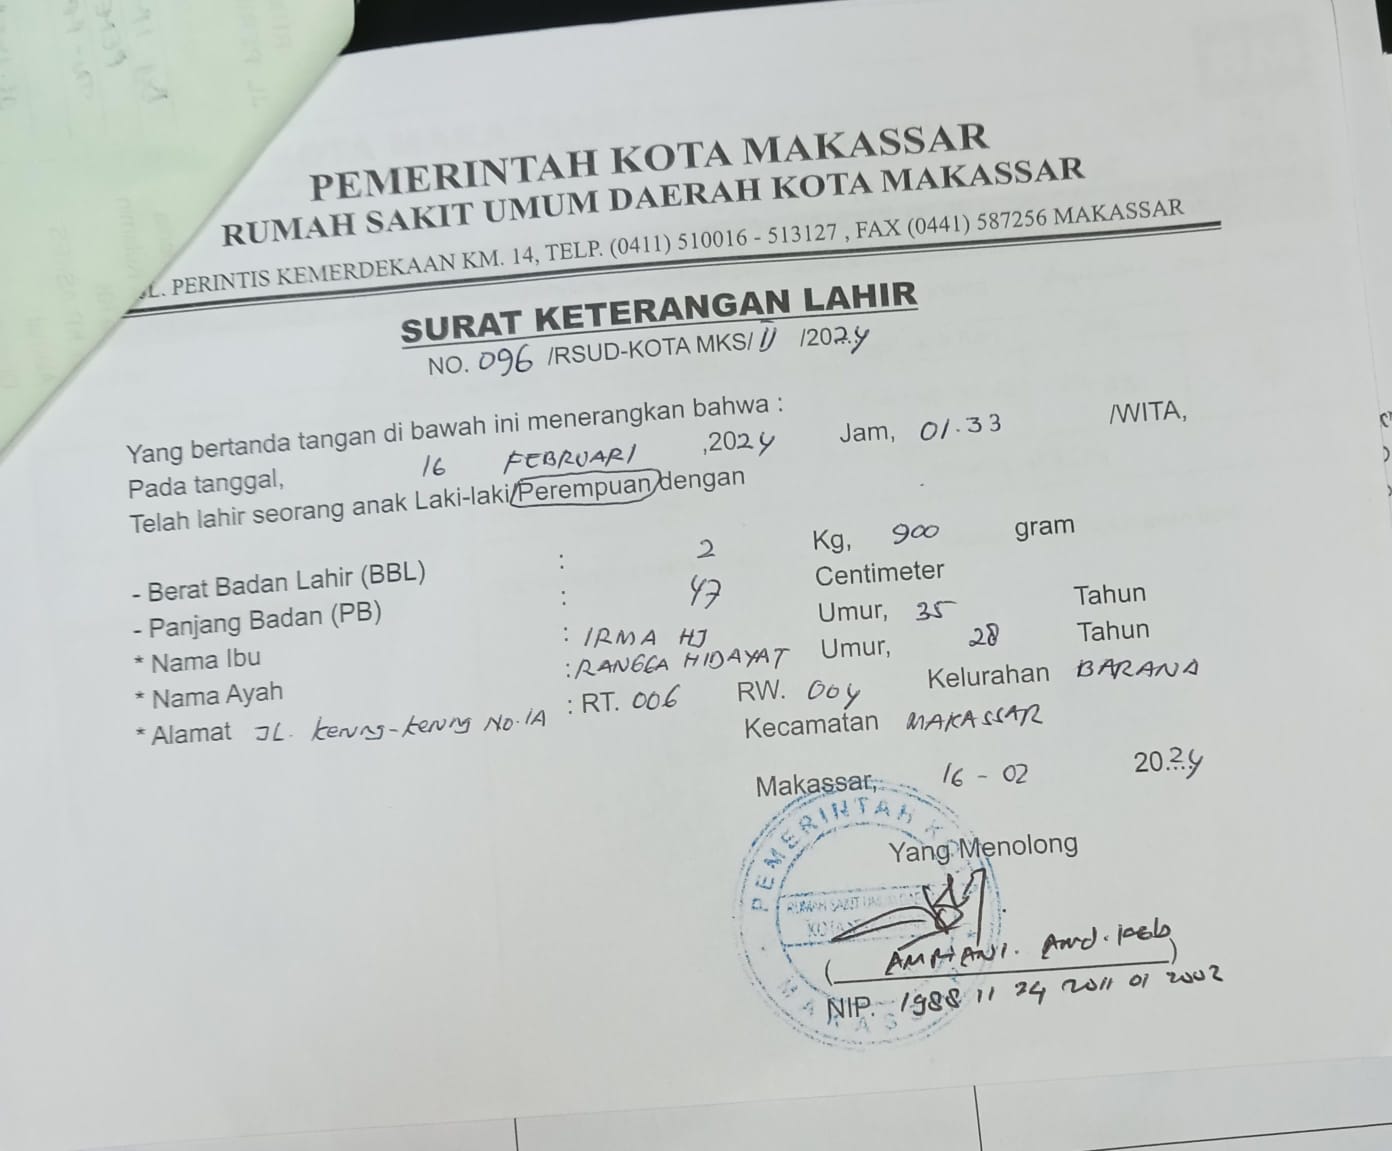 PEMERINTAH KOTA MAKASSAR
RUMAH SAKIT UMUM DAERAH KOTA MAKASSAR
JL. PERINTIS KEMERDEKAAN KM. 14, TELP. (0411) 510016 - 513127 , FAX (0441) 587256 MAKASSAR
SURAT KETERANGAN LAHIR
NO. 096 /RSUD-KOTA MKS/ II /2024
Yang bertanda tangan di bawah ini menerangkan bahwa :
Pada tanggal, 16 FEBRUARI ,2024 Jam, 01.33 /WITA,
Telah lahir seorang anak Laki-laki/Perempuan dengan
- Berat Badan Lahir (BBL) : 2 Kg, 900 gram
- Panjang Badan (PB) : 47 Centimeter
* Nama Ibu : IRMA HJ Umur, 35 Tahun
* Nama Ayah : RANGGA HIDAYAT Umur, 28 Tahun
* Alamat JL. kerung-kerung No.1A : RT. 006 RW. 004 Kelurahan BARANA
Kecamatan MAKASSAR
Makassar, 16 - 02 2024
Yang Menolong
PEMERINTAH KO
RUMAH SAKIT UMUM
KOTA
MAKASS
( AMHANI. Amd.keb )
NIP. 1988 11 24 2011 01 2002